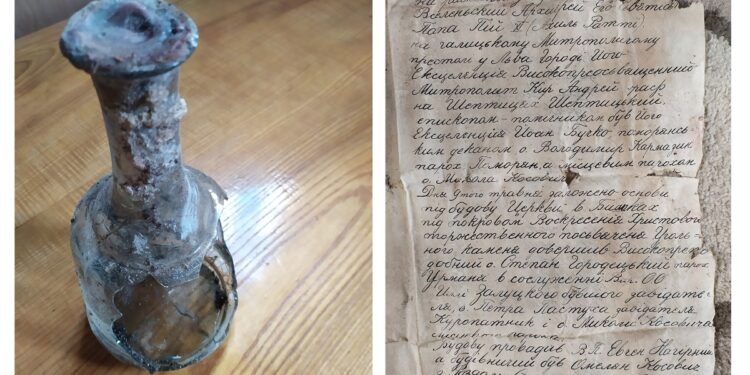 Вселенський Архиєрей Его Святість
Папа Пій XI (Ахиль Ратті)
на галицькому Митрополичому
престолі у Льва Городі Його
Ексцеленція Високопреосьвященний
Митрополит Кир Андрей граф
на Шептицях Шептицький.
єпископом-помічником був Його
Ексцеленція Иоан Бучко, поморянсь-
ким деканом о. Володимир Кармазин
парох Поморян, а місцевим парохом
о. Микола Косович
Дня 9того травня заложено основи
під будову Церкви в Бишках
під покровом Воскресения Христового
торжественного посьвячення Уголь-
ного каменя довершив Високопрепо-
добний о. Степан Городецький парох
Урманя в сослуженні Впр. ОО
Иллі Залуцкого бувшого завідате-
ля, о. Петра Пастуха завідателя
Куропатник і о. Миколи Косовича
Будову провадив В.П. Евген Нагірний
а будівничий був Омелян Косович